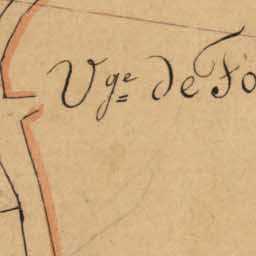 Vge de Fo